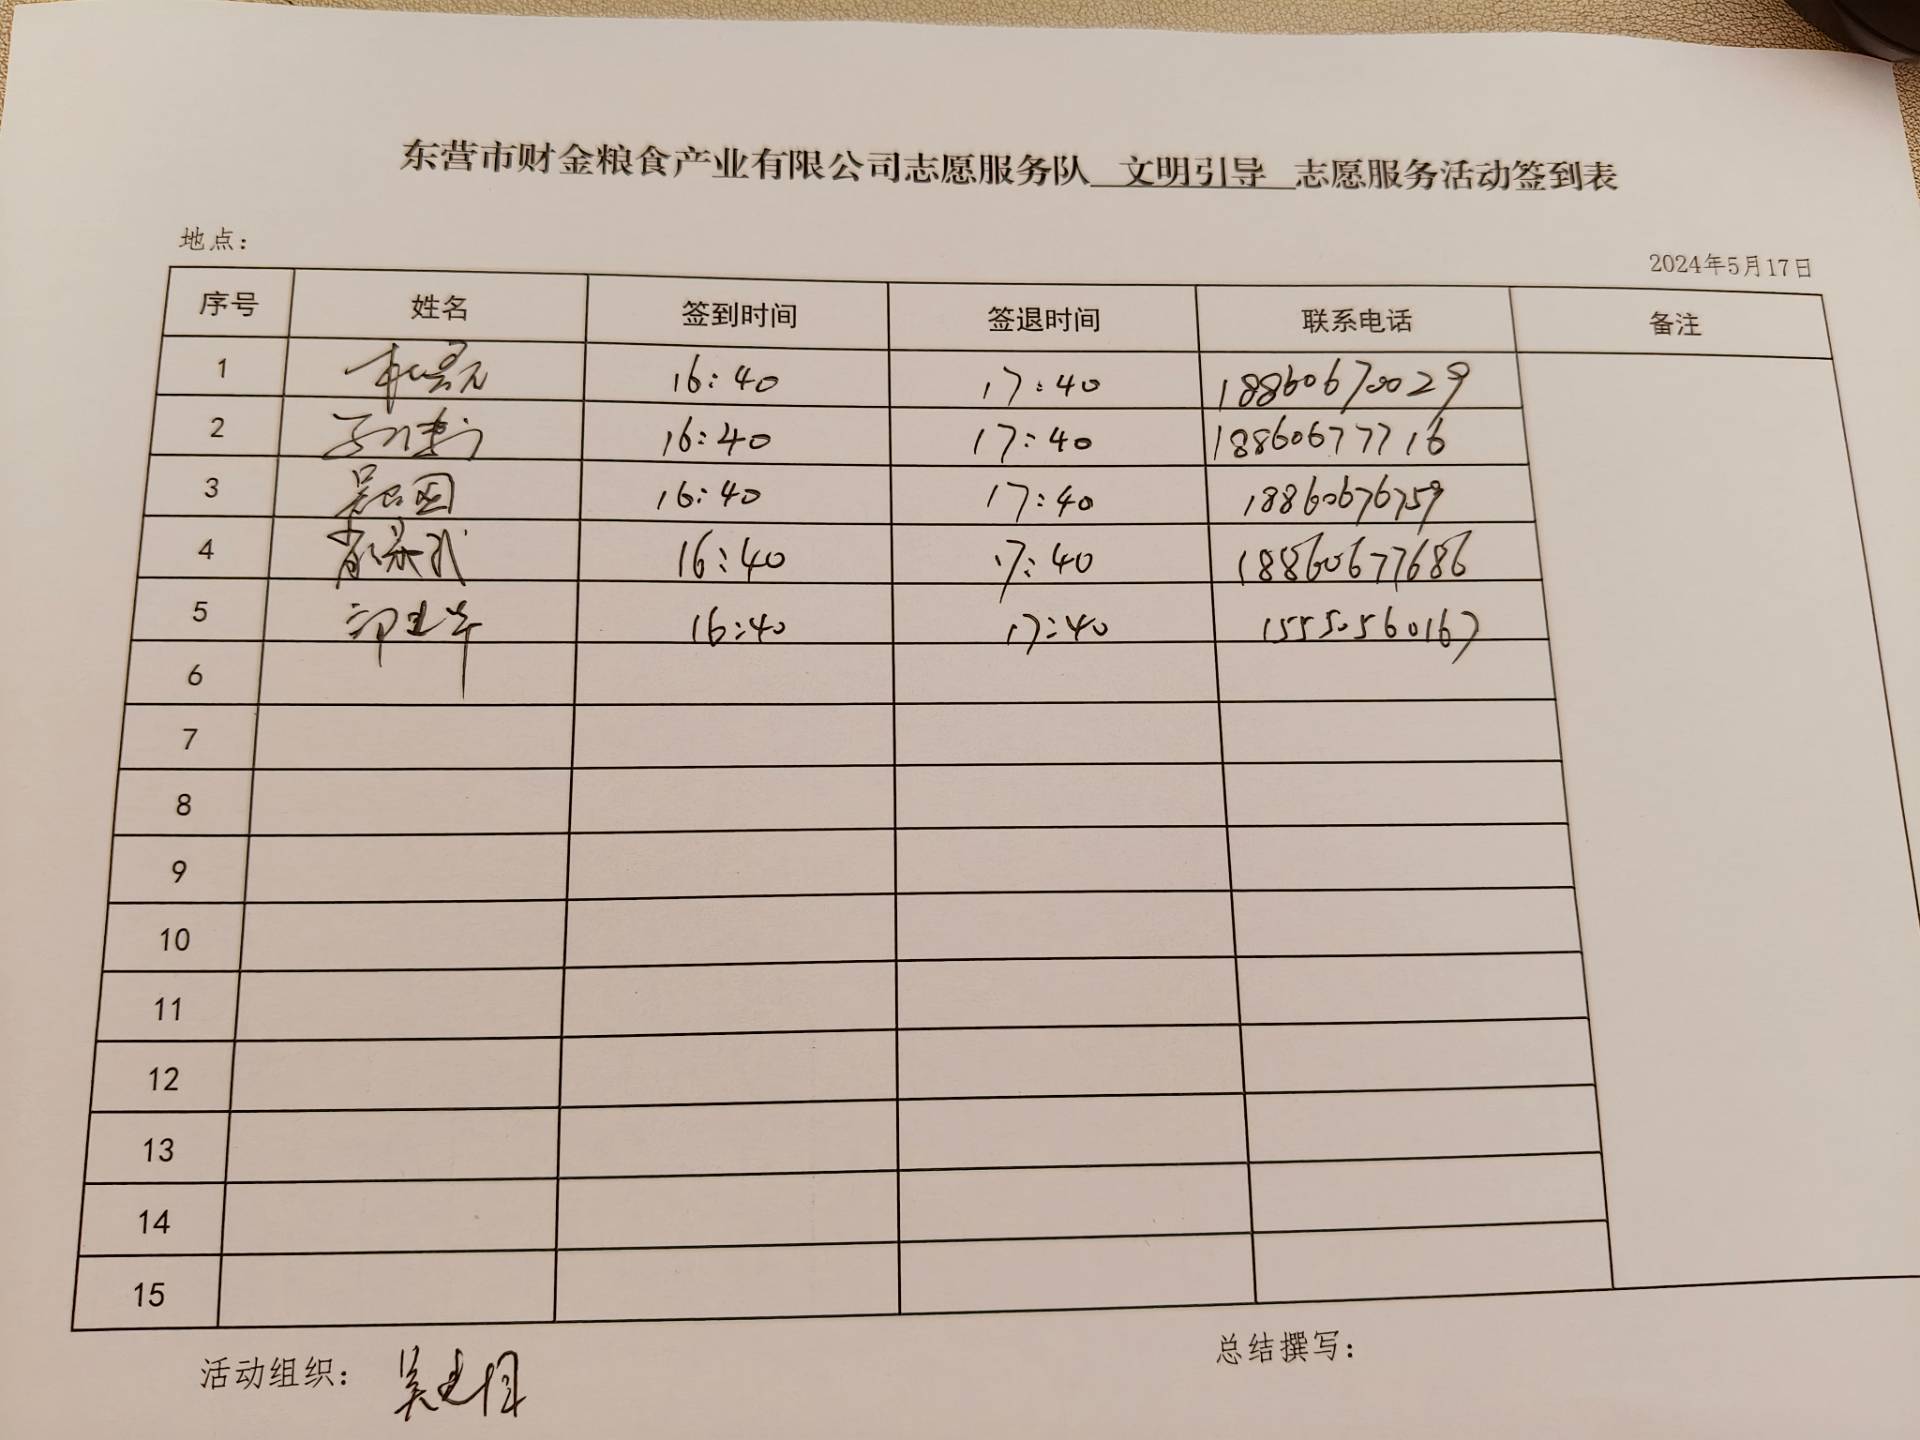 东营市财金粮食产业有限公司志愿服务队 文明引导 志愿服务活动签到表
地点：
2024年5月17日
序号 姓名 签到时间 签退时间 联系电话 备注
1 16:40 17:40 18860670029
2 16:40 17:40 18860677716
3 16:40 17:40 18860676759
4 16:40 17:40 18860677686
5 16:40 17:40 15550560167
6
7
8
9
10
11
12
13
14
15
活动组织： 总结撰写：